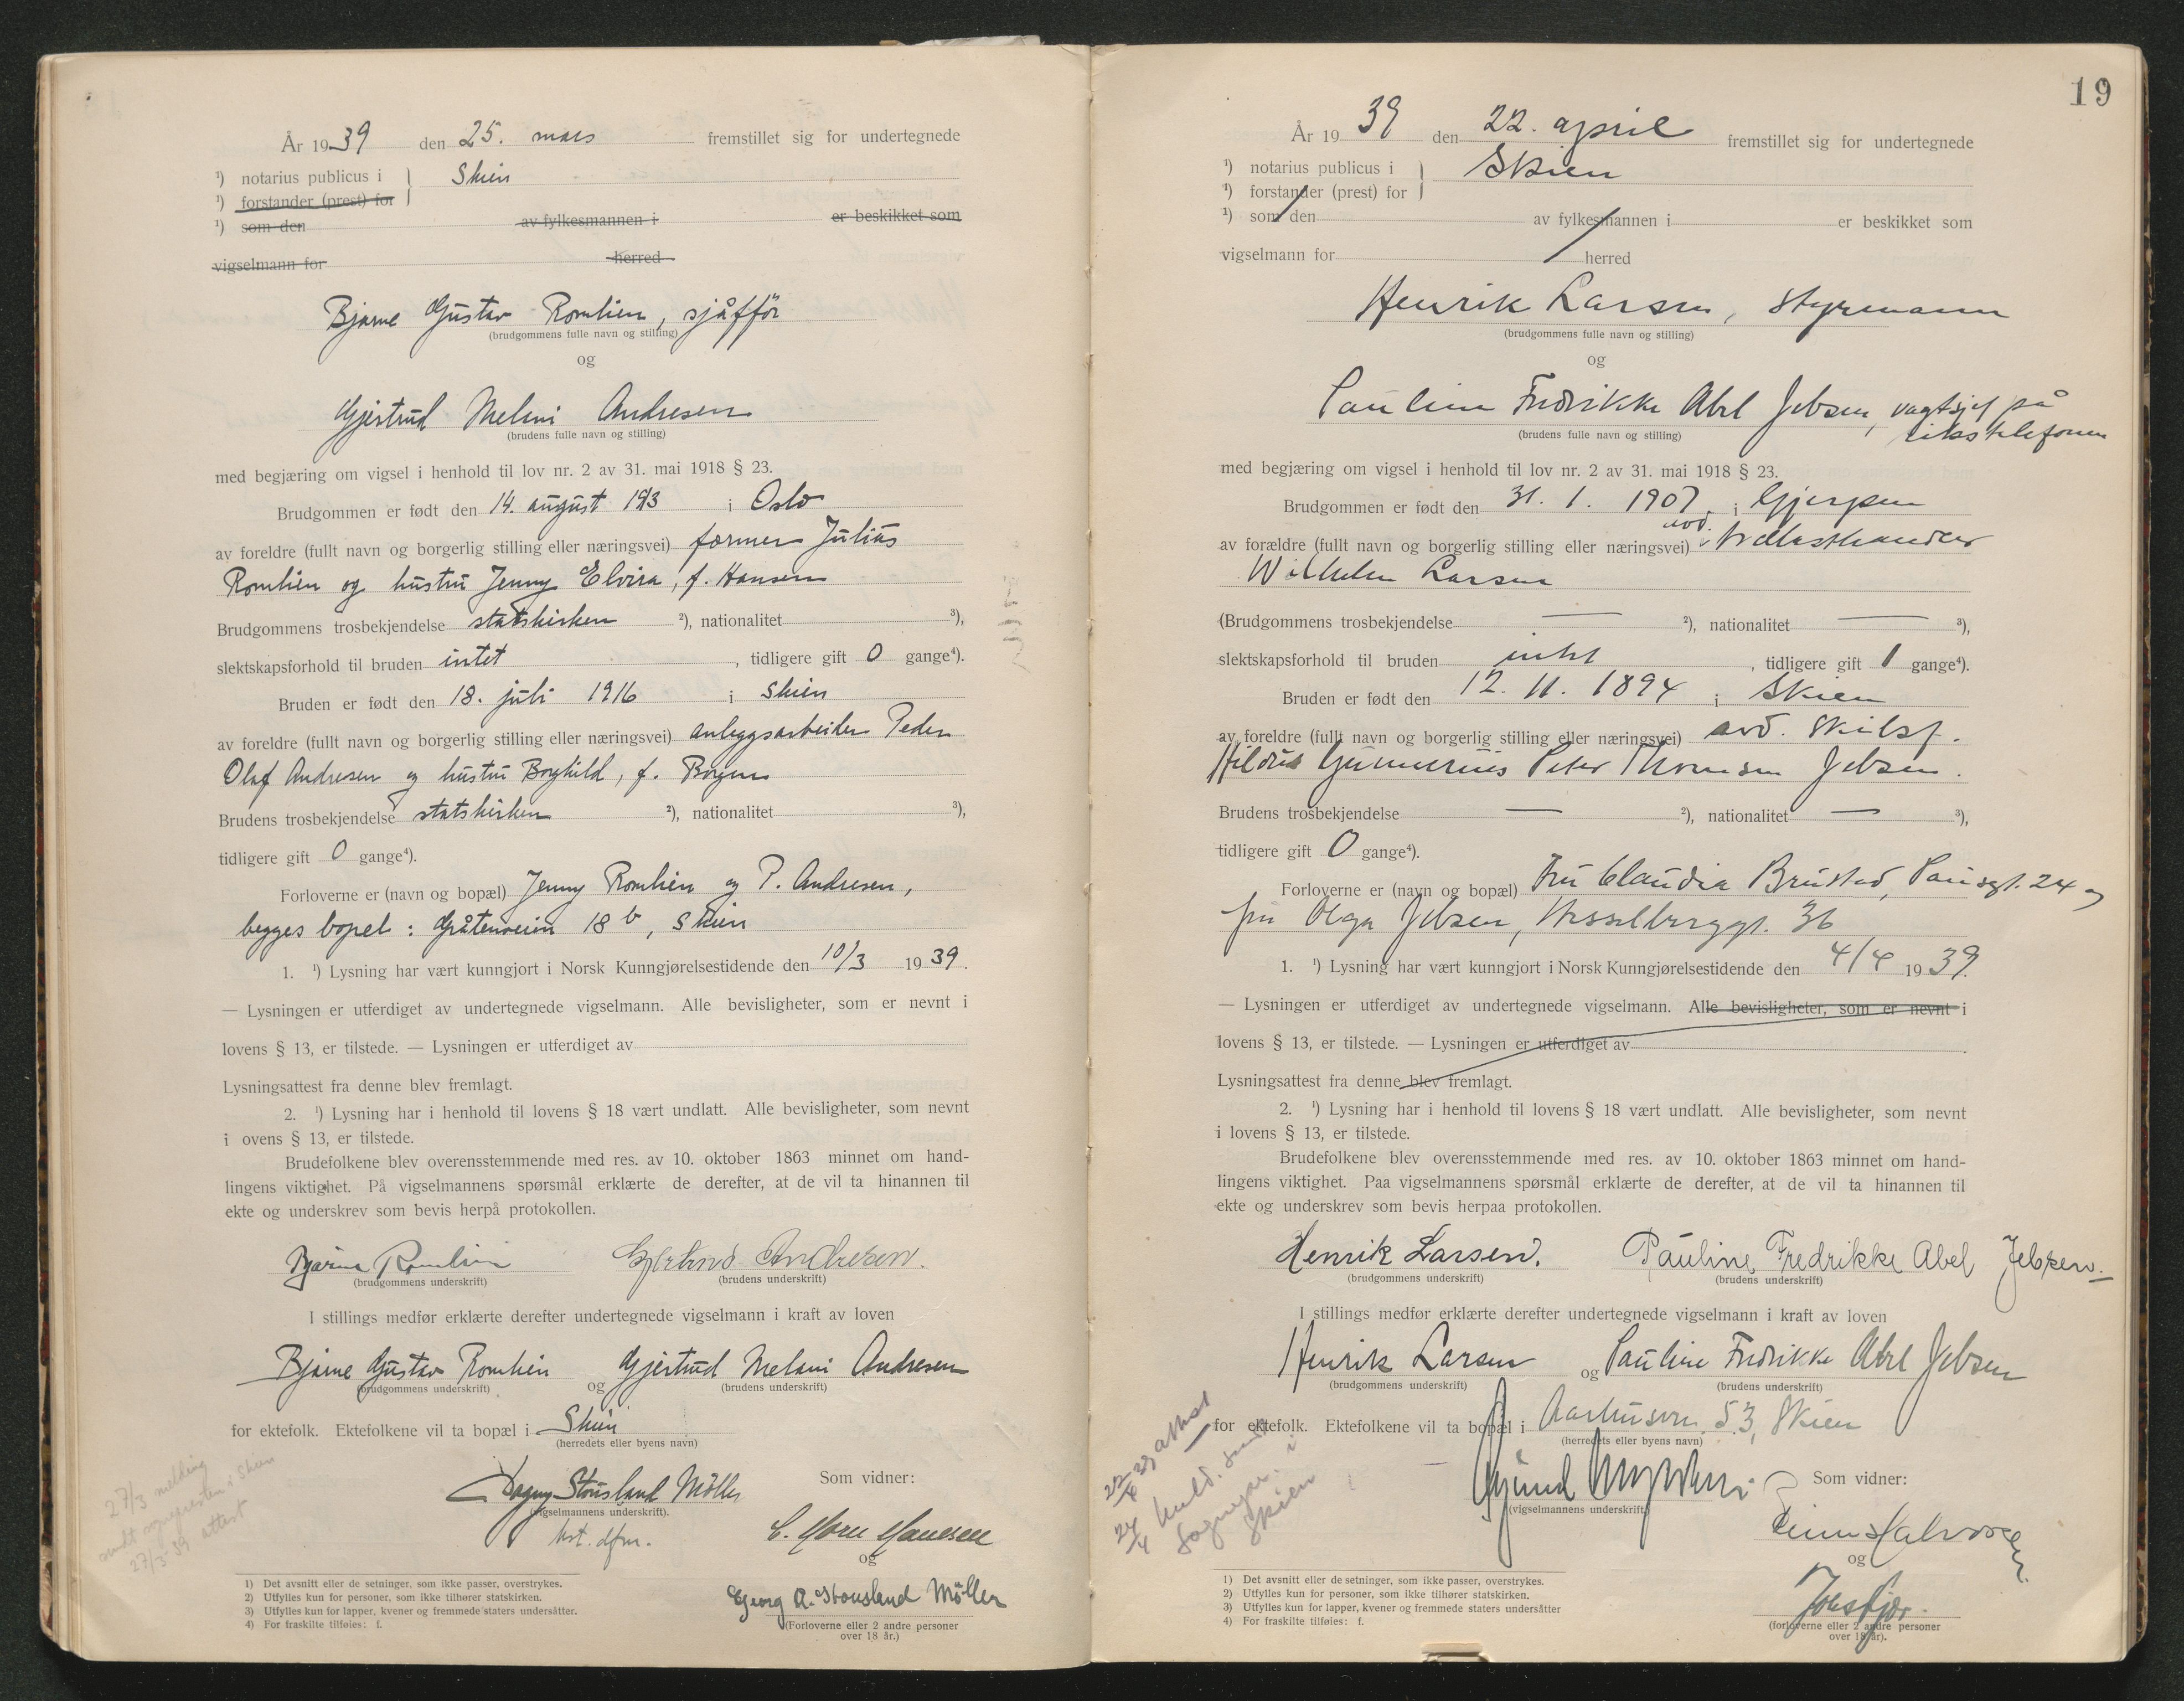 År 1939 den 25. mars fremstillet sig for undertegnede
¹) notarius publicus i } Skien
¹) forstander (prest) for
¹) som den av fylkesmannen i er beskikket som
vigselmann for herred
Bjarne Gustav Romlien, sjåffør
(brudgommens fulle navn og stilling)
og
Gjertrud Melani Andresen
(brudens fulle navn og stilling)
med begjæring om vigsel i henhold til lov nr. 2 av 31. mai 1918 § 23.
Brudgommen er født den 14. august 1913 i Oslo
av foreldre (fullt navn og borgerlig stilling eller næringsvei) former Julius
Romlien og hustru Jenny Elvira, f. Hansen
Brudgommens trosbekjendelse statskirken ²), nationalitet ³),
slektskapsforhold til bruden intet , tidligere gift 0 gange⁴).
Bruden er født den 18. juli 1916 i Skien
av foreldre (fullt navn og borgerlig stilling eller næringsvei) anleggsarbeider Peder
Olaf Andresen og hustru Borghild, f. Borgen
Brudens trosbekjendelse statskirken ²), nationalitet ³),
tidligere gift 0 gange⁴).
Forloverne er (navn og bopæl) Jenny Romlien og P. Andresen,
begges bopel: Gråtenveien 18 b, Skien
1. ¹) Lysning har vært kunngjort i Norsk Kunngjørelsestidende den 10/3 1939.
— Lysningen er utferdiget av undertegnede vigselmann. Alle bevisligheter, som er nevnt i
lovens § 13, er tilstede. — Lysningen er utferdiget av
Lysningsattest fra denne blev fremlagt.
2. ¹) Lysning har i henhold til lovens § 18 vært undlatt. Alle bevisligheter, som nevnt
i ovens § 13, er tilstede.
Brudefolkene blev overensstemmende med res. av 10. oktober 1863 minnet om hand-
lingens viktighet. På vigselmannens spørsmål erklærte de derefter, at de vil ta hinannen til
ekte og underskrev som bevis herpå protokollen.
Bjarne Romlien Gjertrud Andresen.
(brudgommens underskrift) (brudens underskrift)
I stillings medfør erklærte derefter undertegnede vigselmann i kraft av loven
Bjarne Gustav Romlien og Gjertrud Melani Andresen
(brudgommens underskrift) (brudens underskrift)
for ektefolk. Ektefolkene vil ta bopæl i Skien
(herredets eller byens navn)
27/3 melding
sendt sognepresten i Skien
27/3 39 attest
Dagny Stousland Möller
(vigselmannens underskrift).
kst. dfm.
Som vidner:
C. Horn Hanssen
og
Georg A. Stousland Möller
(Forloverne eller 2 andre personer
over 18 år.)
1) Det avsnitt eller de setninger, som ikke passer, overstrykes.
2) Utfylles kun for personer, som ikke tilhører statskirken.
3) Utfylles kun for lapper, kvener og fremmede staters undersåtter.
4) For fraskilte tilføies: f.
19
År 1939 den 22. april fremstillet sig for undertegnede
¹) notarius publicus i } Skien
¹) forstander (prest) for
¹) som den av fylkesmannen i er beskikket som
vigselmann for herred
Henrik Larsen, styrmann
(brudgommens fulle navn og stilling)
og
Pauline Fredrikke Abel Jebsen, vagtsjef på
rikstelefonen
(brudens fulle navn og stilling)
med begjæring om vigsel i henhold til lov nr. 2 av 31. mai 1918 § 23.
Brudgommen er født den 31. 1. 1907 i Gjerpen
av forældre (fullt navn og borgerlig stilling eller næringsvei) avd. trælasthandler
Wilhelm Larsen
(Brudgommens trosbekjendelse — ²), nationalitet — ³),
slektskapsforhold til bruden intet , tidligere gift 1 gange⁴).
Bruden er født den 12. 11. 1894 i Skien
av foreldre (fullt navn og borgerlig stilling eller næringsvei) avd. skibsf.
Gunnerius Peter Thomsen Jebsen.
Brudens trosbekjendelse — ²), nationalitet — ³),
tidligere gift 0 gange⁴).
Forloverne er (navn og bopæl) Fru Claudia Brusted, Pausgt. 24 og
fru Olga Jebsen, Hesselberggt. 36
1. ¹) Lysning har vært kunngjort i Norsk Kunngjørelsestidende den 4/4 1939.
— Lysningen er utferdiget av undertegnede vigselmann. Alle bevisligheter, som er nevnt i
lovens § 13, er tilstede. — Lysningen er utferdiget av
Lysningsattest fra denne blev fremlagt.
2. ¹) Lysning har i henhold til lovens § 18 vært undlatt. Alle bevisligheter, som nevnt
i lovens § 13, er tilstede.
Brudefolkene blev overensstemmende med res. av 10. oktober 1863 minnet om hand-
lingens viktighet. Paa vigselmannens spørsmål erklærte de derefter, at de vil ta hinannen til
ekte og underskrev som bevis herpaa protokollen.
Henrik Larsen. Pauline Fredrikke Abel Jebsen.
(brudgommens underskrift) (brudens underskrift)
I stillings medfør erklærte derefter undertegnede vigselmann i kraft av loven
Henrik Larsen og Pauline Fredrikke Abel Jebsen
(brudgommens underskrift) (brudens underskrift)
for ektefolk. Ektefolkene vil ta bopæl i Aarhusvn. 53, Skien
(herredets eller byens navn)
22/4 39 attest
24/4 meld. sendt
sognepr. i
Skien
(vigselmannens underskrift)
Som vidner:
Halvorsen
og
(forloverne eller 2 andre personer
over 18 år).
1) Det avsnitt eller de setninger, som ikke passer, overstrykes.
2) Utfylles kun for personer, som ikke tilhører statskirken.
3) Utfylles kun for lapper, kvener og fremmede staters undersåtter
4) For fraskilte tilføies: f.